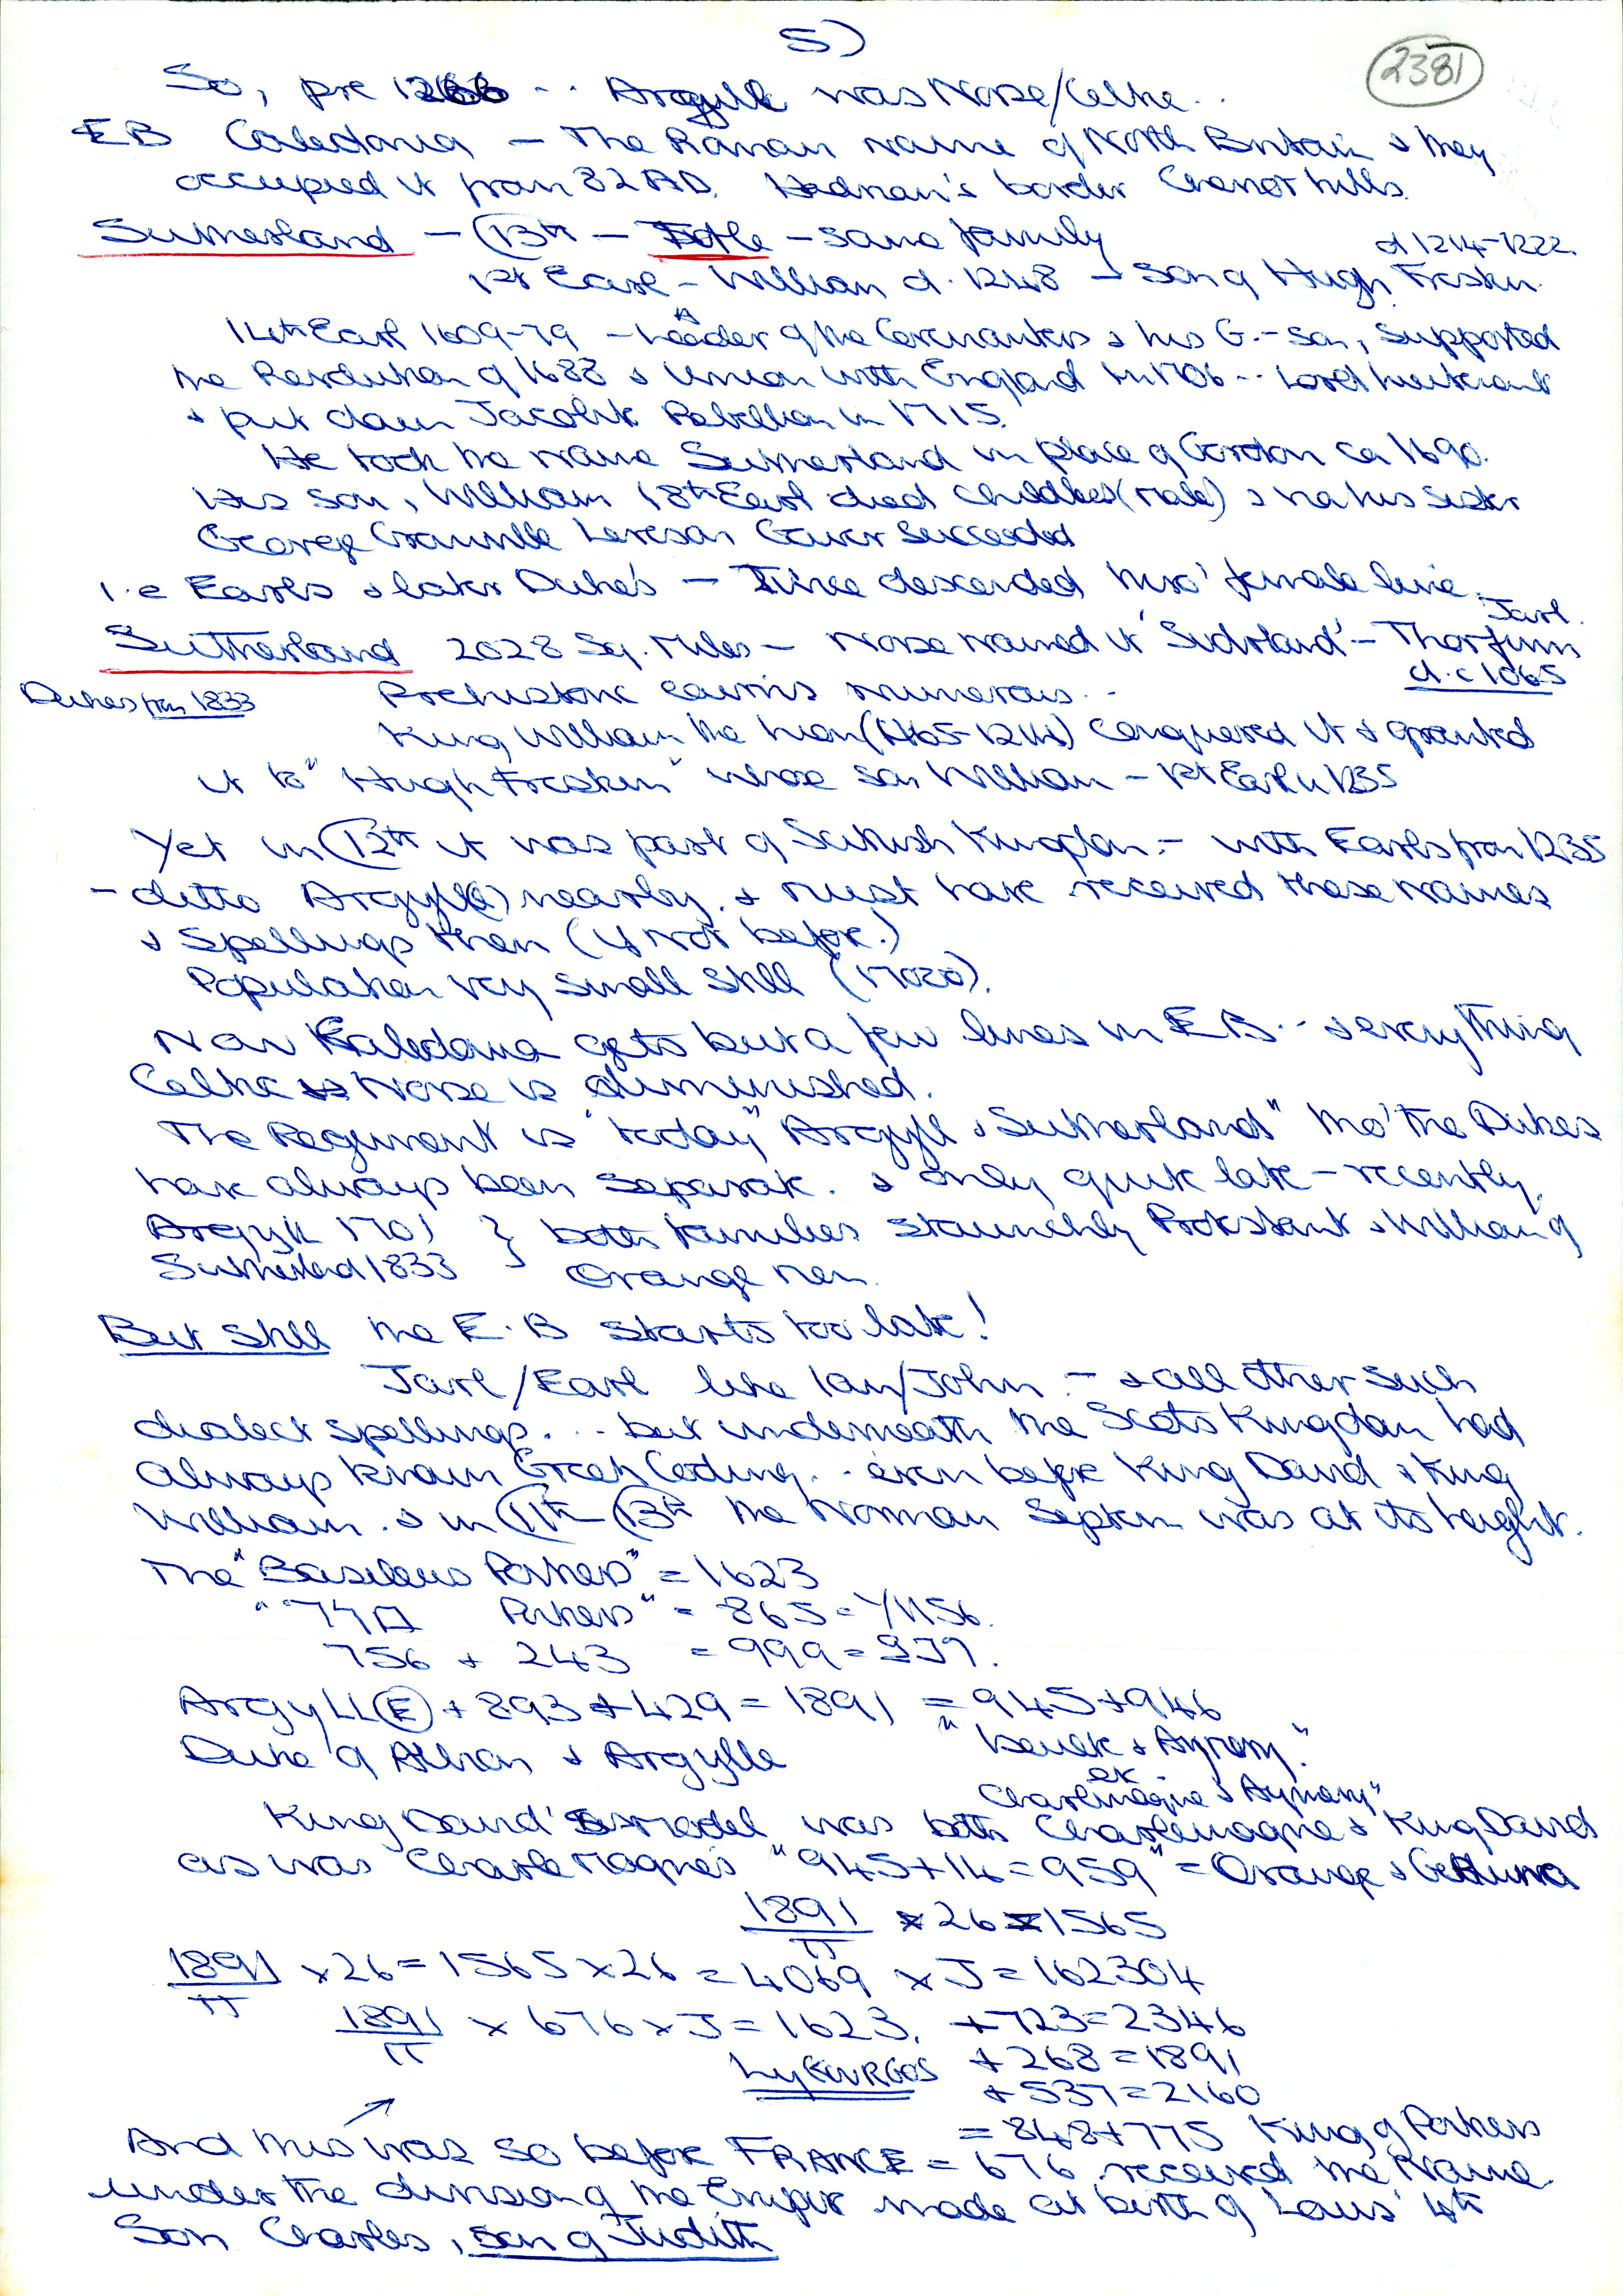 5)
2381
So, pre 1266 .. Argyll was Norse/Celtic..
EB Caledonia — The Roman name of North Britain & they
occupied it from 82 AD. Hadrian's border Cheviot hills.
Sutherland — (13th — Title — same family
d 1214-1222.
1st Earl — William d. 1248 — son of Hugh Freskin.
14th Earl 1609-79 — Leader of the Covenanters & his G.-son, supported
the Revolution of 1688 & Union with England in 1706 .. Lord Lieutenant
& put down Jacobite Rebellion in 1715.
He took the name Sutherland in place of Gordon ca 1690.
His son, William 18th Earl died childless (male) &
his sister
George Granville Leveson Gower succeeded
i.e Earls & later Dukes — Title descended thro' female line.
Jarl.
Sutherland 2028 Sq. Miles — Norse named it 'Sudrland' — Thorfinn
d. c 1065
Dukes from 1833
Prehistoric cairns numerous ..
King William the Lion (1165-1214) conquered it & granted
it to "Hugh Freskin" whose son William — 1st Earl in 1235
Yet in 12th it was part of Scottish Kingdom — with Earls from 1235
— ditto Argyll(e) nearby. & must have received these names
& spellings then (if not before.)
Population very small still (17000).
Now Kaledonia gets but a few lines in E.B. .. & everything
Celtic & Norse is diminished.
The Regiment is "today" Argyll & Sutherland" tho' the Dukes
have always been separate. & only quite late — recently.
Argyll 1701 } both families staunchly Protestant & William of
Sutherland 1833 } Orange men.
But still the E.B starts too late!
Jarl/Earl like Ian/John — & all other such
dialect spellings. .. but underneath the Scots Kingdom had
always known Greek Coding .. even before King David & King
William. & in 11th — 13th the Norman System was at its height.
The "Basileus Potheos" = 1623
" 77
" = 865 =
756 + 243 = 999 = 937.
ArgyLL(E) + 893 + 429 = 1891 = 945 + 946
Duke of Athol & Argylle
& Aymery."
ex
Charlemagne & Aymery"
King David's model was both Charlemagne & King David
as was Charlemagne's "945 + 14 = 959" = Orange &
1891/π × 26 = 1565
1891/π × 26 = 1565 × 26 = 4069 × J = 162304
1891/π × 676 × J = 1623. + 723 = 2346
LyKOURGOS + 268 = 1891
+ 537 = 2160
= 848 + 775 King of
And this was so before FRANCE = 676 received the Name
under the division of the Empire made at birth of Louis' 4th
Son Charles, son of Judith